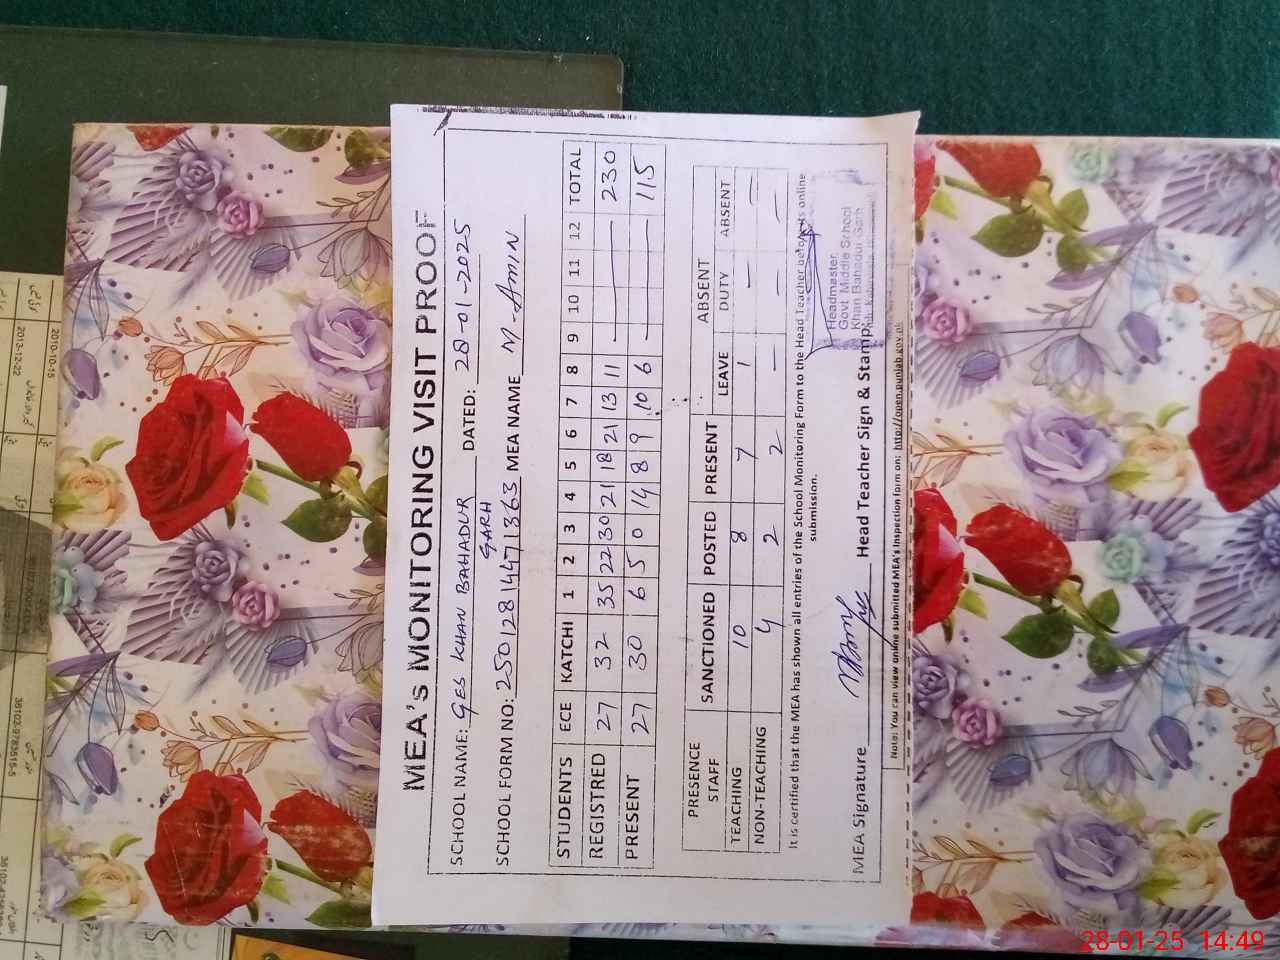 MEA's MONITORING VISIT PROOF
SCHOOL NAME: GES KHAN BAHADUR GARH DATED: 28-01-2025
SCHOOL FORM NO: 25012814471363 MEA NAME M-Amin
STUDENTS ECE KATCHI 1 2 3 4 5 6 7 8 9 10 11 12 TOTAL
REGISTRED 27 32 35 22 30 21 18 21 13 11 — 230
PRESENT 27 30 6 5 0 14 8 9 10 6 — 115
PRESENCE STAFF SANCTIONED POSTED PRESENT ABSENT
LEAVE DUTY ABSENT
TEACHING 10 8 7 1 — —
NON-TEACHING 4 2 2 — — —
It is certified that the MEA has shown all entries of the School Monitoring Form to the Head Teacher before its online
submission.
Headmaster
Govt Middle School
Khan Bahadur Garh
MEA Signature Head Teacher Sign & Stamp
Note: You can view online submitted MEA's Inspection form on: http://open.punjab.gov.pk
2010-10-15
2013-12-22
28-01-25 14:49